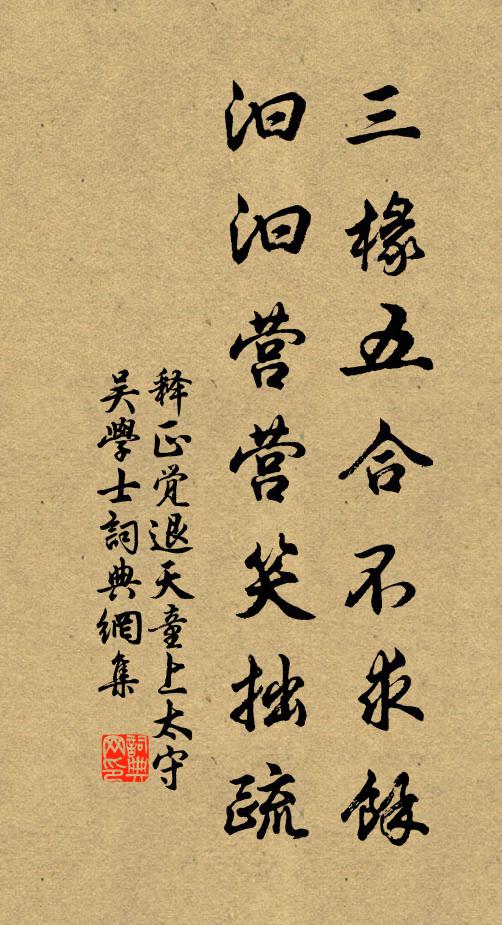 三椽五合不求餘
汩汩营营笑拙疏
释正觉退天童上太守
吴學士詞典網集
詞典
网印